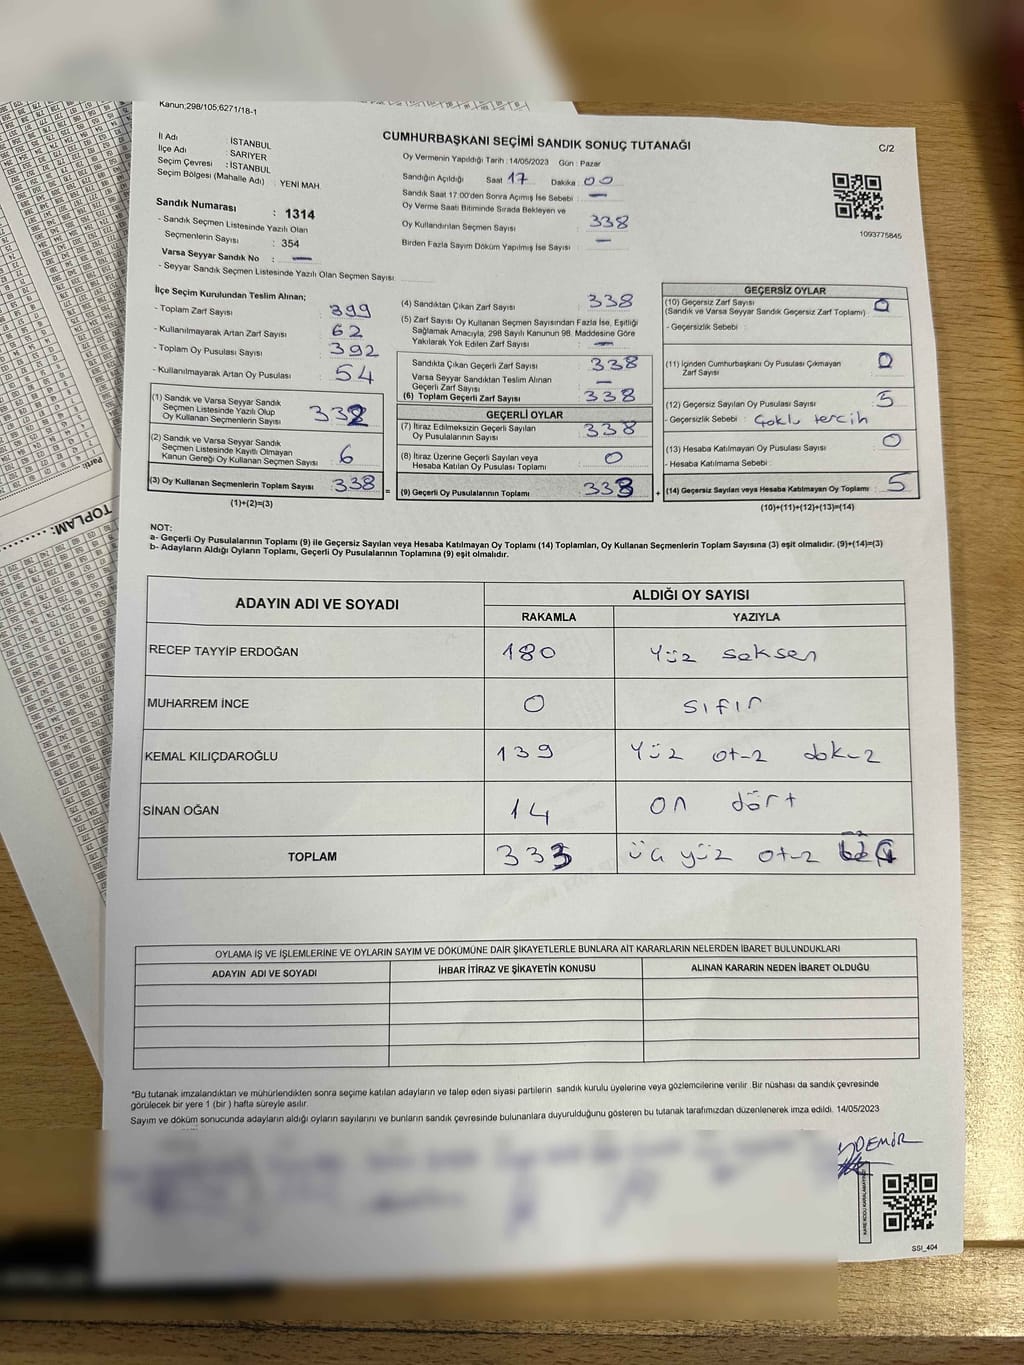 Kanun;298/105;6271/18-1
İl Adı : İSTANBUL
İlçe Adı : SARIYER
Seçim Çevresi : İSTANBUL
Seçim Bölgesi (Mahalle Adı) : YENİ MAH.
Sandık Numarası : 1314
- Sandık Seçmen Listesinde Yazılı Olan
Seçmenlerin Sayısı : 354
Varsa Seyyar Sandık No : —
- Seyyar Sandık Seçmen Listesinde Yazılı Olan Seçmen Sayısı
CUMHURBAŞKANI SEÇİMİ SANDIK SONUÇ TUTANAĞI
C/2
Oy Vermenin Yapıldığı Tarih : 14/05/2023 Gün : Pazar
Sandığın Açıldığı Saat 17 Dakika 00
Sandık Saat 17:00'den Sonra Açımış İse Sebebi : —
Oy Verme Saati Bitiminde Sırada Bekleyen ve
Oy Kullandırılan Seçmen Sayısı : 338
Birden Fazla Sayım Döküm Yapılmış İse Sayısı : —
1093775845
İlçe Seçim Kurulundan Teslim Alınan;
- Toplam Zarf Sayısı : 399
- Kullanılmayarak Artan Zarf Sayısı : 62
- Toplam Oy Pusulası Sayısı : 392
- Kullanılmayarak Artan Oy Pusulası : 54
(1) Sandık ve Varsa Seyyar Sandık
Seçmen Listesinde Yazılı Olup
Oy Kullanan Seçmenlerin Sayısı : 332
(2) Sandık ve Varsa Seyyar Sandık
Seçmen Listesinde Kayıtlı Olmayan
Kanun Gereği Oy Kullanan Seçmen Sayısı : 6
(3) Oy Kullanan Seçmenlerin Toplam Sayısı : 338
(1)+(2)=(3)
(4) Sandıktan Çıkan Zarf Sayısı : 338
(5) Zarf Sayısı Oy Kullanan Seçmen Sayısından Fazla İse, Eşitliği
Sağlamak Amacıyla; 298 Sayılı Kanunun 98. Maddesine Göre
Yakılarak Yok Edilen Zarf Sayısı : —
Sandıkta Çıkan Geçerli Zarf Sayısı : 338
Varsa Seyyar Sandıktan Teslim Alınan
Geçerli Zarf Sayısı : —
(6) Toplam Geçerli Zarf Sayısı : 338
GEÇERLİ OYLAR
(7) İtiraz Edilmeksizin Geçerli Sayılan
Oy Pusulalarının Sayısı : 338
(8) İtiraz Üzerine Geçerli Sayılan veya
Hesaba Katılan Oy Pusulası Toplamı : 0
=
(9) Geçerli Oy Pusulalarının Toplamı : 333
+
GEÇERSİZ OYLAR
(10) Geçersiz Zarf Sayısı : 0
(Sandık ve Varsa Seyyar Sandık Geçersiz Zarf Toplamı)
- Geçersizlik Sebebi :
(11) İçinden Cumhurbaşkanı Oy Pusulası Çıkmayan : 0
Zarf Sayısı
(12) Geçersiz Sayılan Oy Pusulası Sayısı : 5
- Geçersizlik Sebebi : Çoklu tercih
(13) Hesaba Katılmayan Oy Pusulası Sayısı : 0
- Hesaba Katılmama Sebebi :
(14) Geçersiz Sayılan veya Hesaba Katılmayan Oy Toplamı : 5
(10)+(11)+(12)+(13)=(14)
NOT:
a- Geçerli Oy Pusulalarının Toplamı (9) ile Geçersiz Sayılan veya Hesaba Katılmayan Oy Toplamı (14) Toplamları, Oy Kullanan Seçmenlerin Toplam Sayısına (3) eşit olmalıdır. (9)+(14)=(3)
b- Adayların Aldığı Oyların Toplamı, Geçerli Oy Pusulalarının Toplamına (9) eşit olmalıdır.
ADAYIN ADI VE SOYADI ALDIĞI OY SAYISI
RAKAMLA YAZIYLA
RECEP TAYYİP ERDOĞAN 180 Yüz seksen
MUHARREM İNCE 0 sıfır
KEMAL KILIÇDAROĞLU 139 Yüz otuz dokuz
SİNAN OĞAN 14 on dört
TOPLAM 333 üç yüz otuz
OYLAMA İŞ VE İŞLEMLERİNE VE OYLARIN SAYIM VE DÖKÜMÜNE DAİR ŞİKAYETLERLE BUNLARA AİT KARARLARIN NELERDEN İBARET BULUNDUKLARI
ADAYIN ADI VE SOYADI İHBAR İTİRAZ VE ŞİKAYETİN KONUSU ALINAN KARARIN NEDEN İBARET OLDUĞU
*Bu tutanak imzalandıktan ve mühürlendikten sonra seçime katılan adayların ve talep eden siyasi partilerin sandık kurulu üyelerine veya gözlemcilerine verilir. Bir nüshası da sandık çevresinde
görülecek bir yere 1 (bir ) hafta süreyle asılır.
Sayım ve döküm sonucunda adayların aldığı oyların sayılarını ve bunların sandık çevresinde bulunanlara duyurulduğunu gösteren bu tutanak tarafımızdan düzenlenerek imza edildi. 14/05/2023
DEMİR
SSI_404
TOPLAM:
Parti: